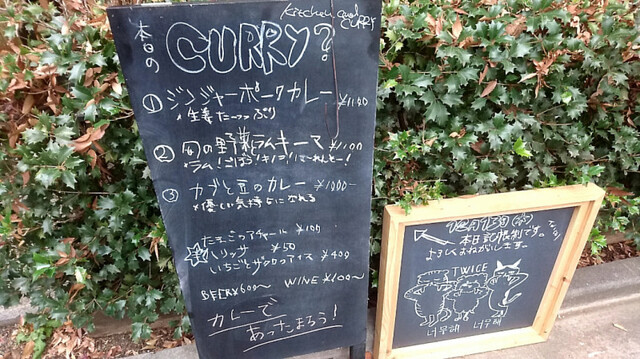 Kitchen and CURRY
本日の CURRY?
① ジンジャーポークカレー ¥1100
生姜たーっぷり
② 旬の野菜ラムキーマ ¥1100
ラム!ごぼう!キノコ!
③ カブと豆のカレー ¥1000-
*優しい気持ちになれる
たまごアチャール ¥100
ハリッサ ¥50
いちごとザクロアイス ¥400
BEER ¥600~ WINE ¥100~
カレーで
あったまろう!
本日記帳制です。
よろしくおねがいします。
TWICE
너무해 너무해